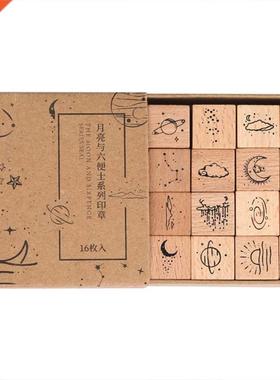 月亮与六便士系列印章
THE MOON AND SIXPENCE
16枚入